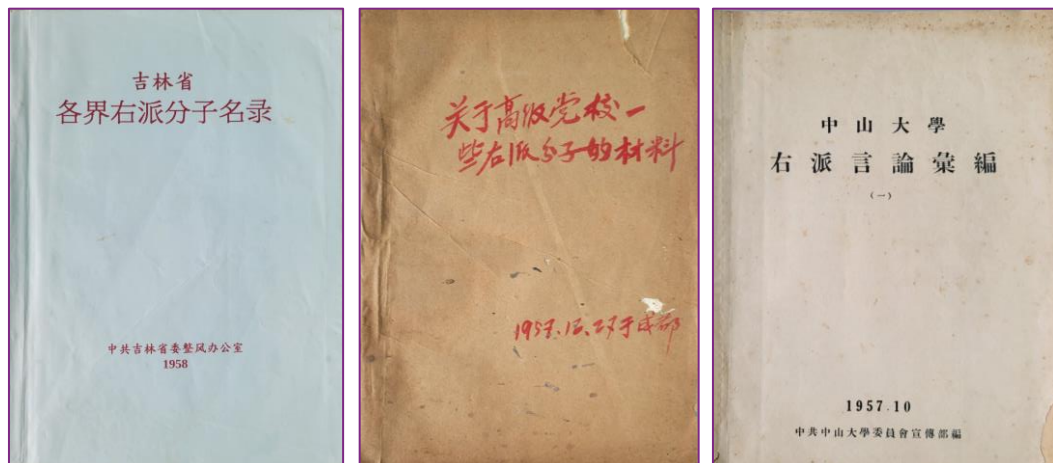 吉林省
各界右派分子名录
中共吉林省委整风办公室
1958
关于高级党校一
些右派分子的材料
1957.12.27于成都
中山大學
右派言論彙編
(一)
1957.10
中共中山大學委員會宣傳部編